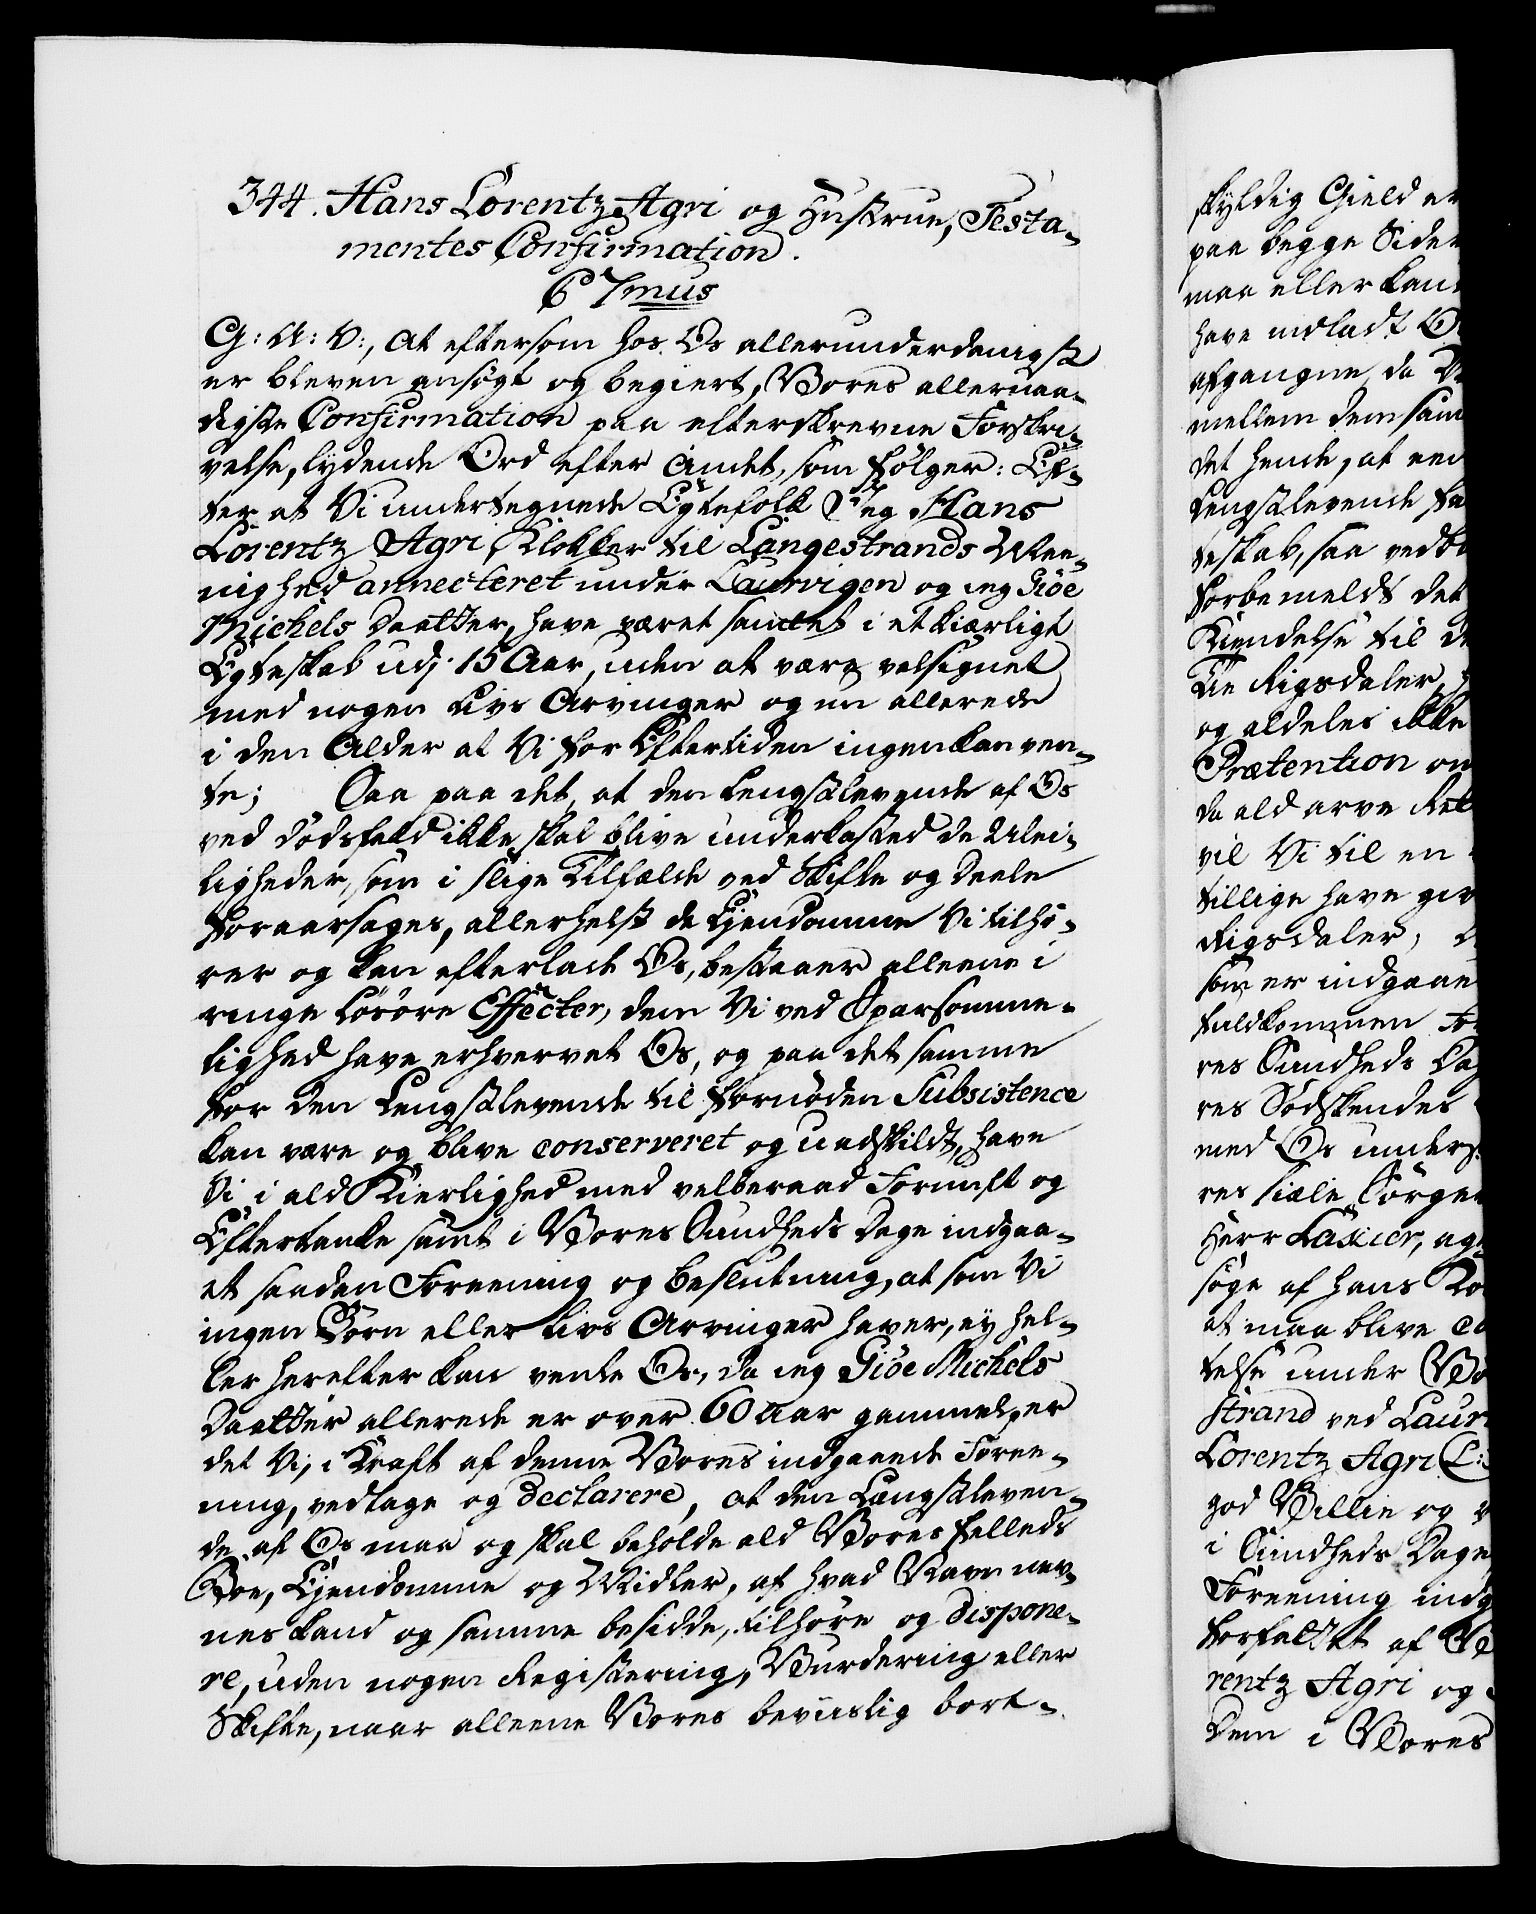 344. Hans Lorentz Agri og Hustrue, Testa-
mentes Confirmation.
6 7mus
G: A: V:, At eftersom hos Os allerunderdanigst
er bleven ansøgt og begiert, Vores allernaa-
digste Confirmation paa efterskrevne Forskri-
velse, lydende Ord efter andet, som følger: Ef-
ter at Vi undertegnede Egtefolk Jeg Hans
Lorentz Agri, Klokker til Langestrands Mee-
nighed annecteret under Laurvigen og ieg Giöe
Michels Daatter, have været samlet i et kiærligt
Egteskab udj 15 Aar, uden at være velsignet
med nogen Livs Arvinger og nu allerede
i den Alder at Vi for Eftertiden ingen kan ven-
te; Saa paa det, at den Lengstlevende af Os
ved Dödsfald ikke skal blive underkasted de Ulei-
ligheder, som i slige Tilfælde ved Skifte og Deele
foraarsages, allerhelst de Ejendomme Vi tilhö-
rer og kan efterlade Os, bestaaer alleene i
ringe Lösöre Effecter, dem Vi ved Sparsomme-
lighed have erhvervet Os, og paa det samme
for den Lengstlevende til fornöden Subsistence
kan være og blive conserveret og uadskildt, have
Vi i ald Kierlighed med velberaad Fornuft og
Eftertanke samt i Vores Sundheds Dage indgaa-
et saadan Foreening og beslutning, at som Vi
ingen Börn eller Livs Arvinger haver, ey hel-
ler herefter kan vente Os, da ieg Giöe Michels
Daatter allerede er over 60 Aar gammel, er
det Vi, i Kraft af denne Vores indgaaede Foree-
ning, vedtage og declarere, at den Længstleven-
de af Os maa og skal beholde ald Vores fælleds
Boe, Ejendomme og Midler, af hvad Navn nev-
nes kand og samme besidde, tilhöre og dispone-
re, uden nogen Registering, Vurdering eller
Skifte, naar alleene Vores beviislig bort-
skyldig Gield er
paa begge Sider
maa eller kan
have indladt
afgangne, da
mellem dem sam
det hende, at een
Lengstlevende
teskab, saa vedb
forbemeldt det
Kiendelse til
Tie Rigsdaler,
og aldeles ikke
Prætention
da ald arve
vil Vi til en
tillige have giv
Rigsdaler,
som er indgaae
fuldkommen
res Sundheds Da
res Södskendes
med Os unders
res siæle Sörger
Herr Laxier,
söge af hans Ko
at maa blive
telse under Vo
strand ved Laur
Lorentz Agri
god Villie og
i Sundheds Dage
Foreening indg
forfattet af
rentz Agri og
Dem i Vores